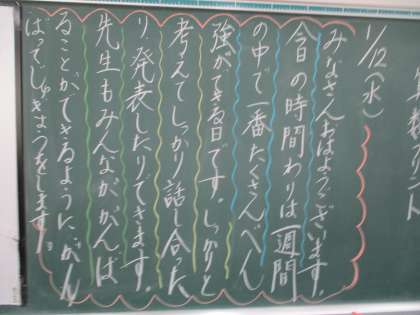 算数プリント
1/12(水)
みなさんおはようございます。
今日の時間わりは一週間
の中で一番たくさんべん
強ができる日です。しっかりと
考えてしっかり話し合った
り、発表したりできます。
先生もみんながんば
ることができるようにがん
ばってじゅぎょうをします！